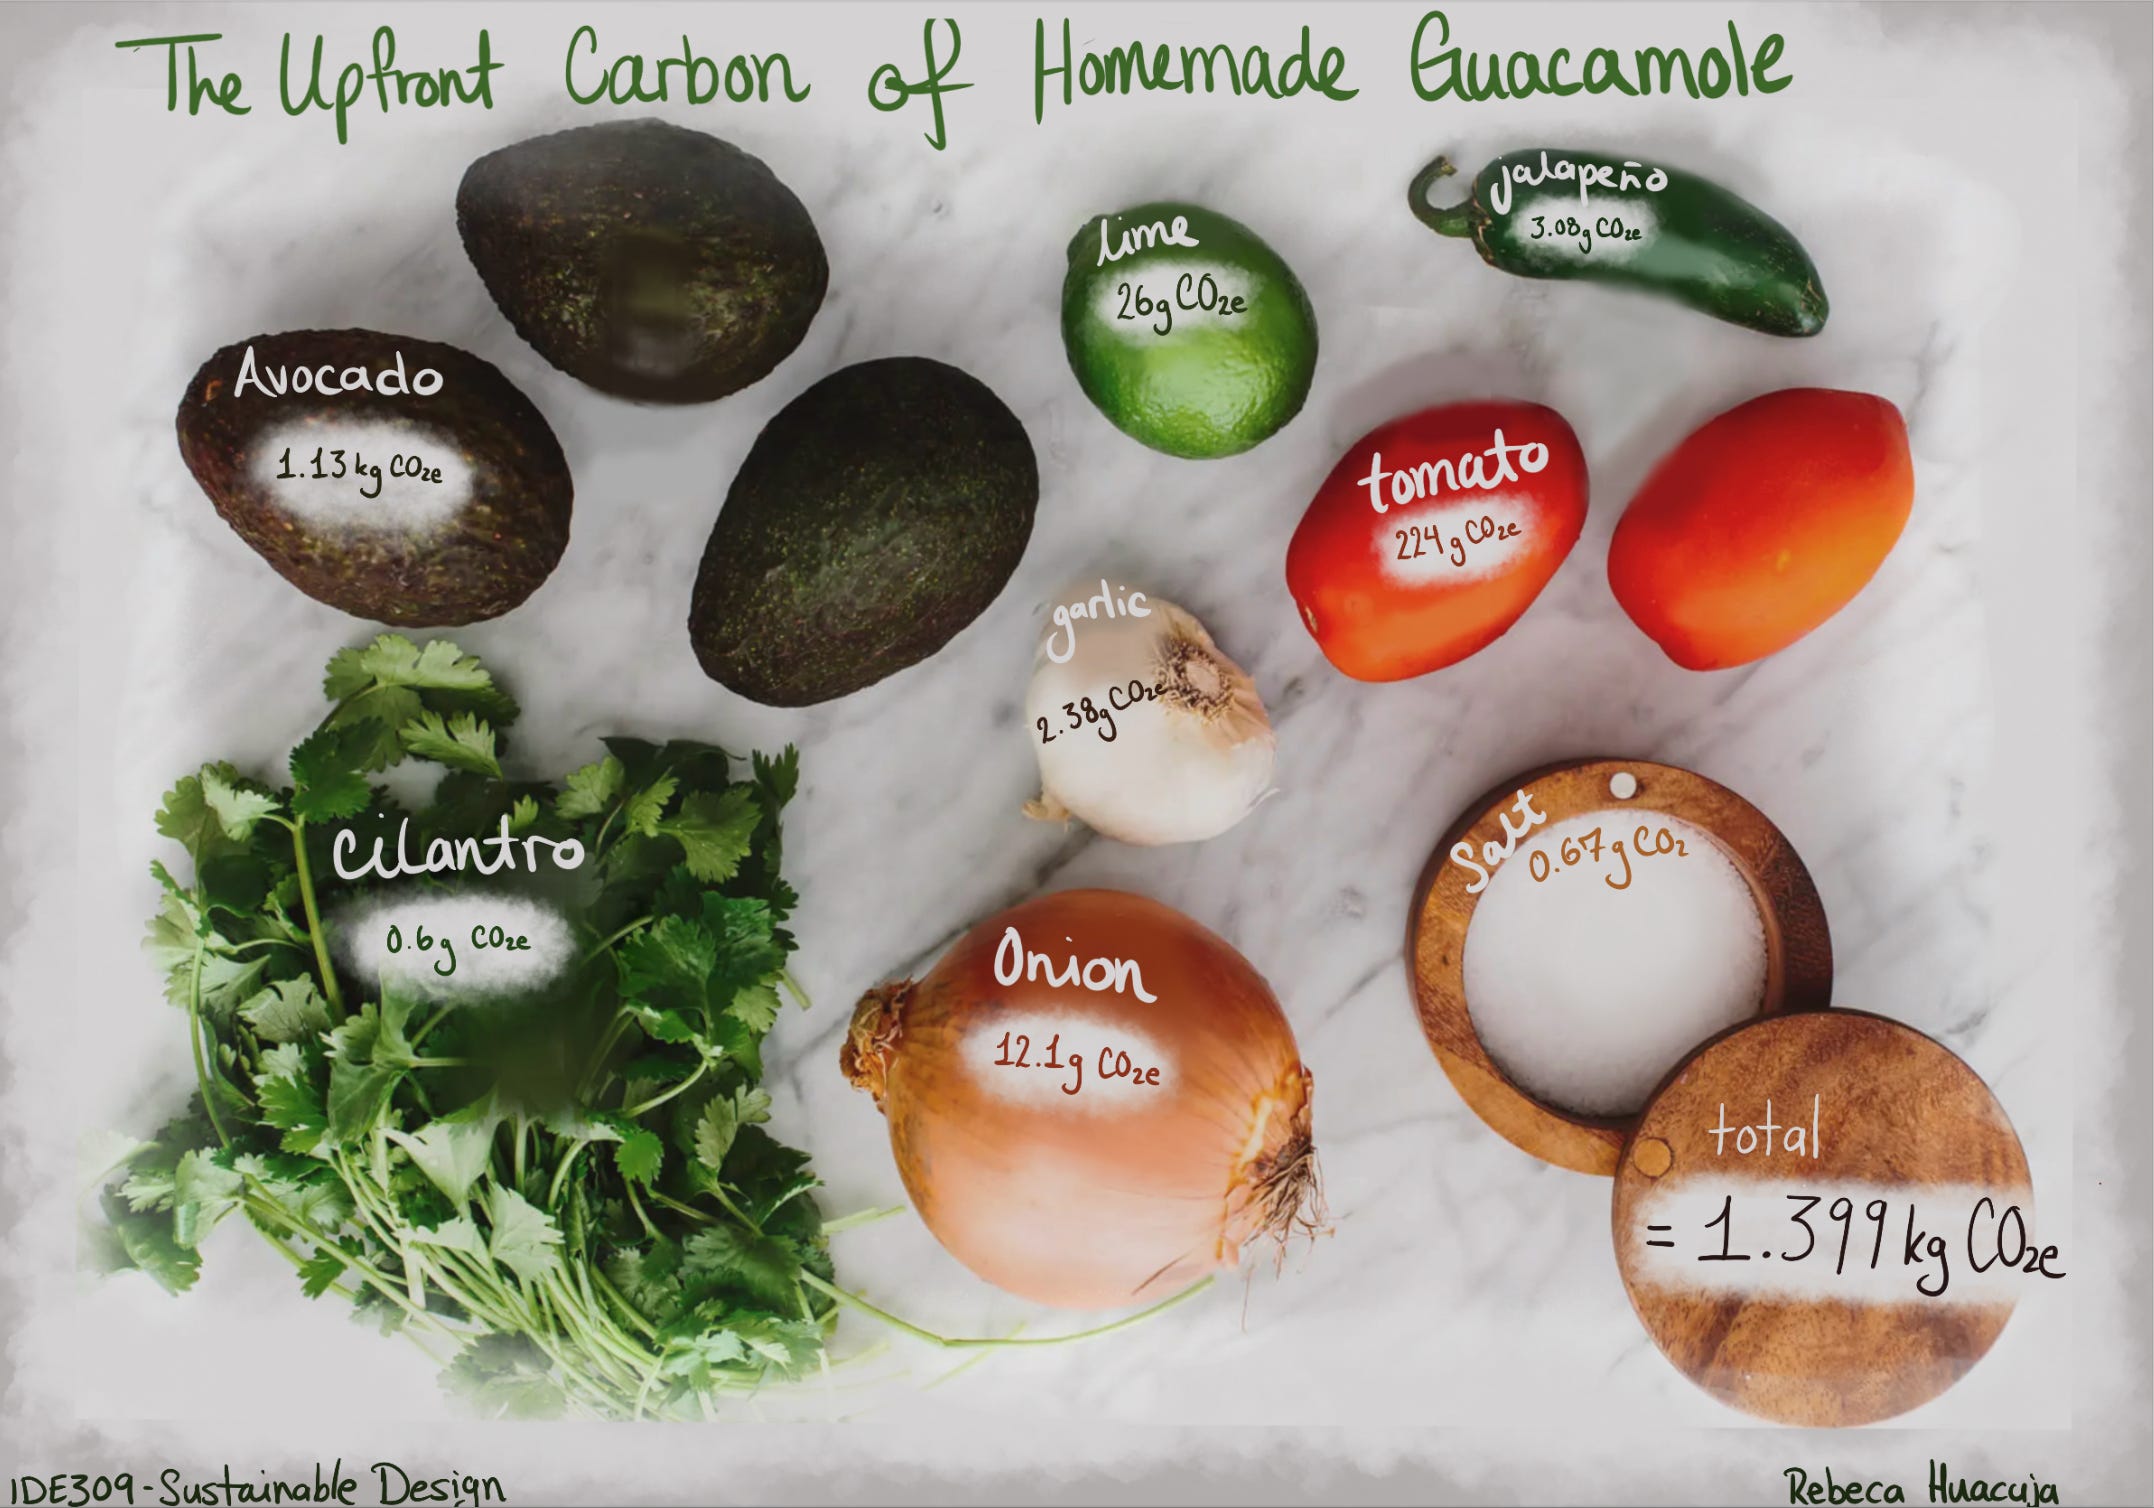 The Upfront Carbon of Homemade Guacamole
jalapeño
3.08g CO2e
lime
26g CO2e
Avocado
1.13 kg CO2e
tomato
224 g CO2e
garlic
2.38g CO2e
Salt
0.67g CO2
cilantro
0.6g CO2e
Onion
12.1g CO2e
total
= 1.399 kg CO2e
IDE309-Sustainable Design
Rebeca Huacuja